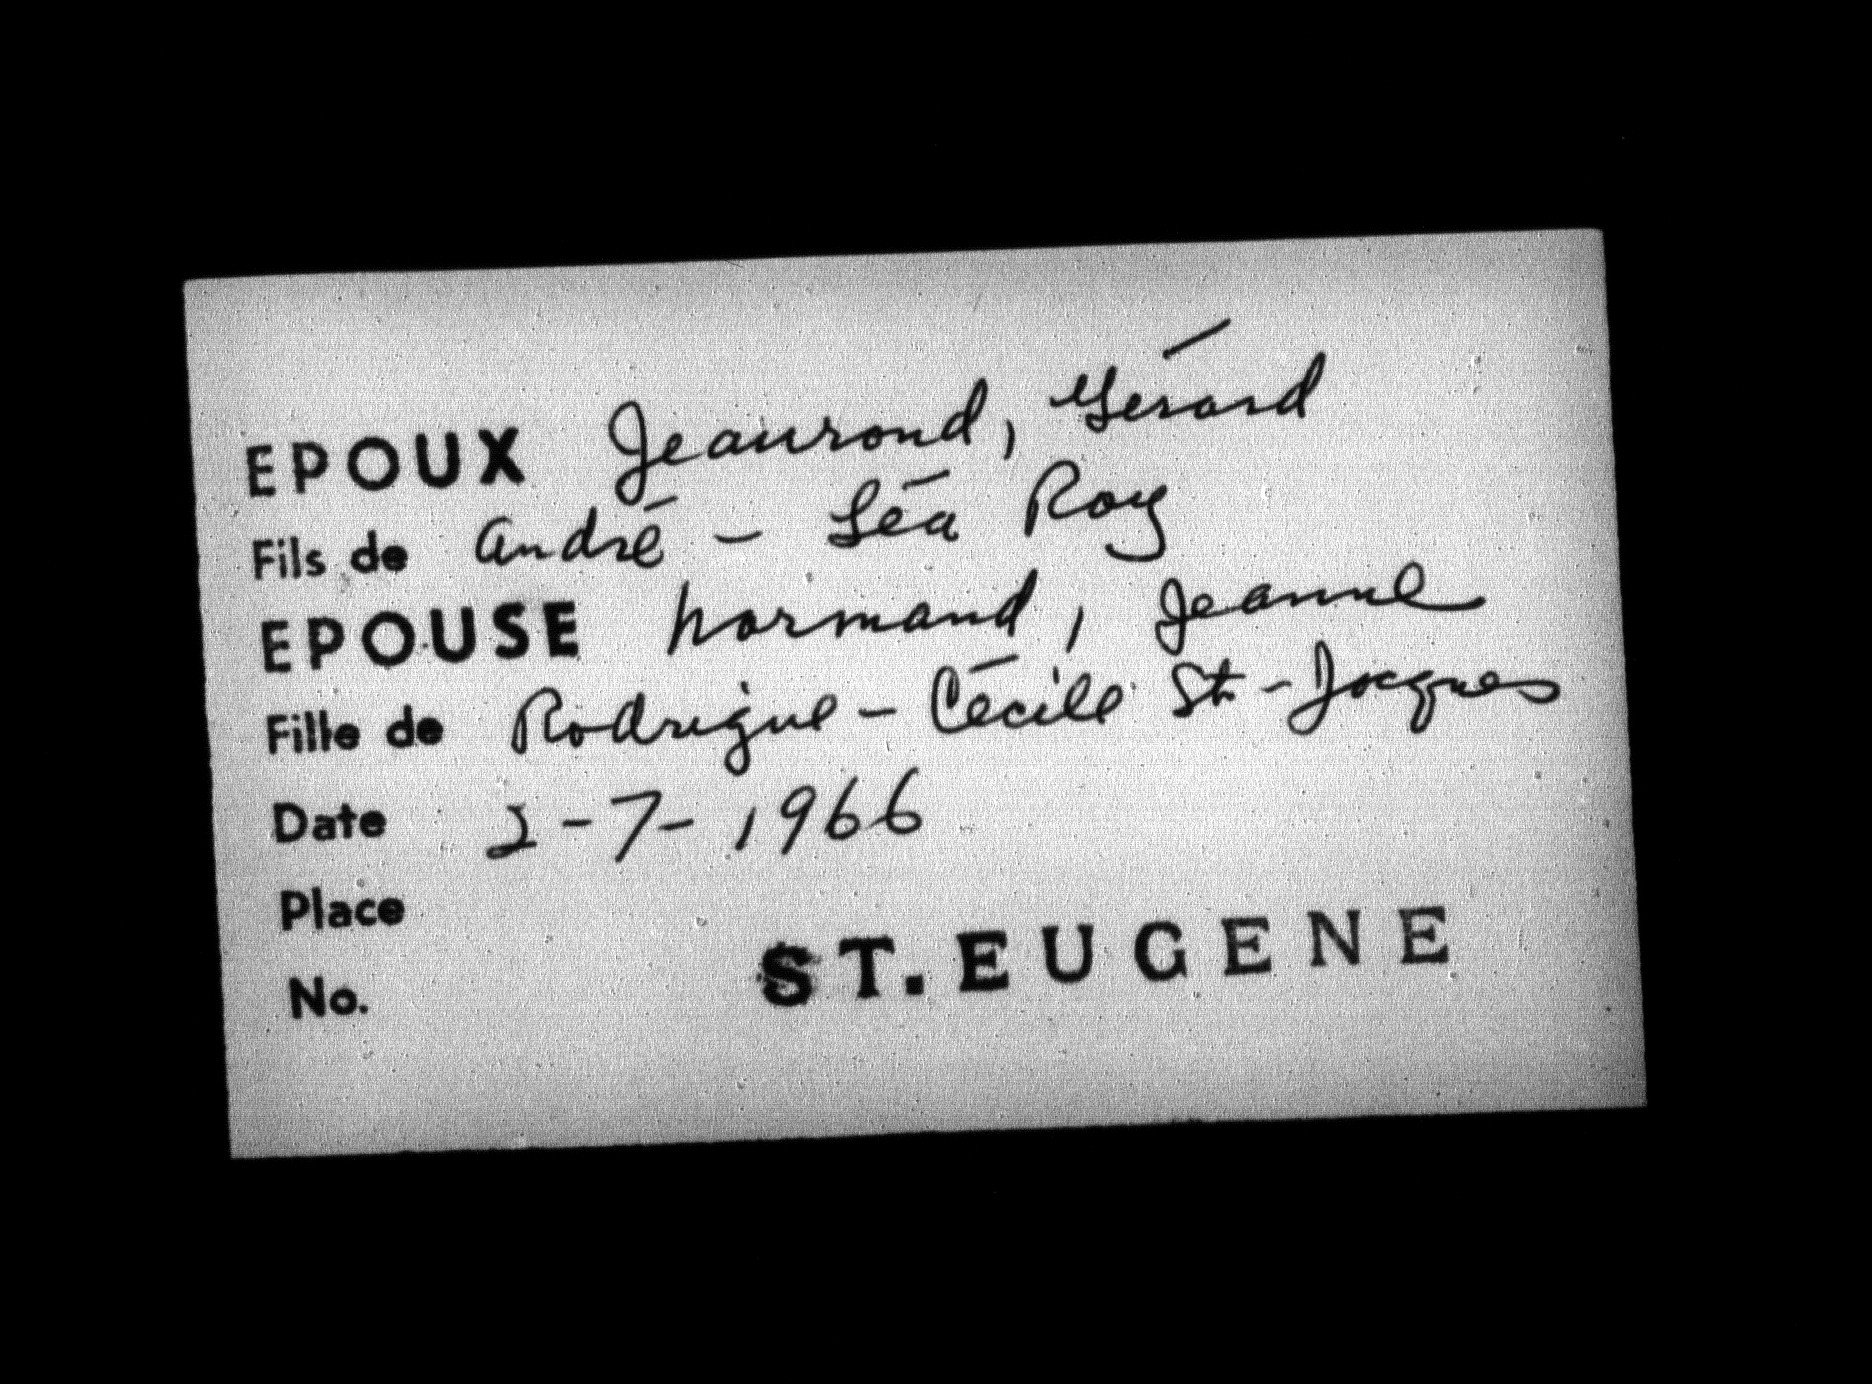 EPOUX Jeaurond, Gérard
Fils de André - Léa Roy
EPOUSE Normand, Jeanne
Fille de Rodrigue - Cécile St-Jacques
Date 2-7-1966
Place
ST. EUGENE
No.